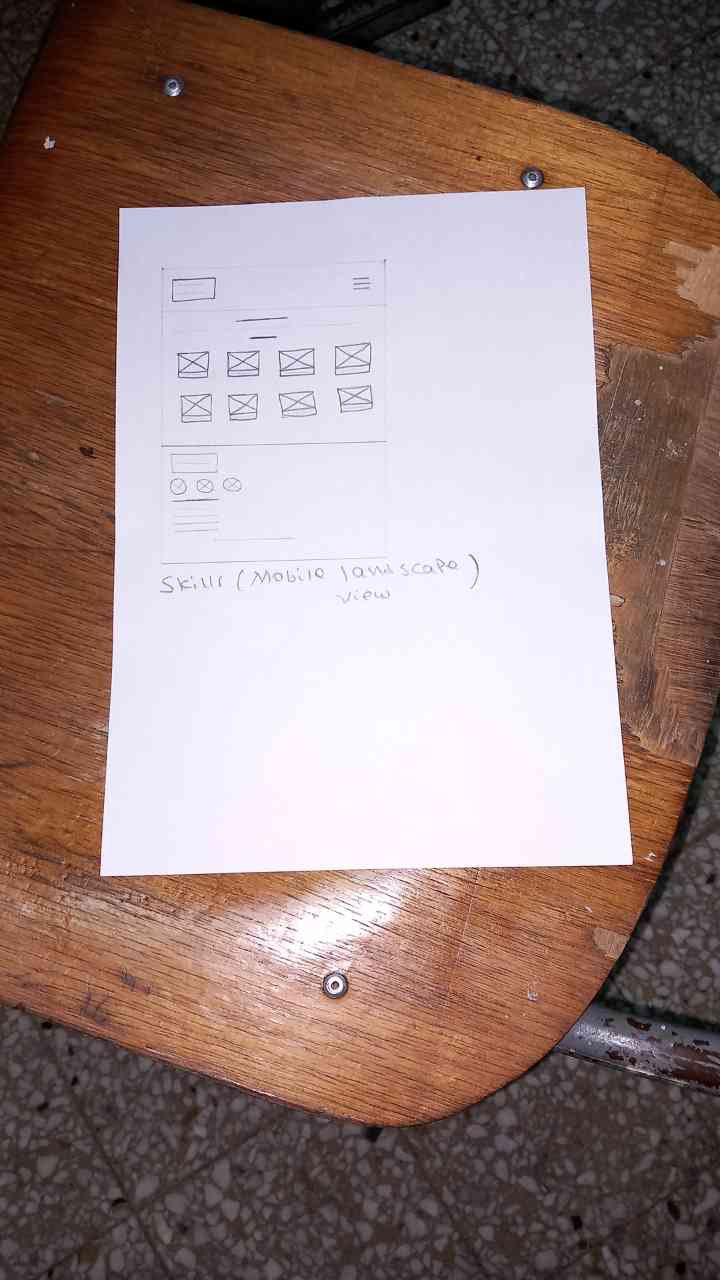 Skills (Mobile landscape)
view